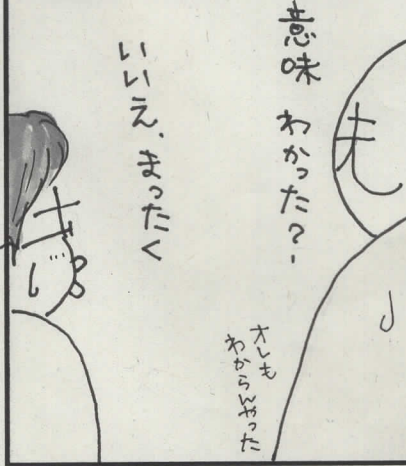 意味 わかった?
夫
いいえ、まったく
オレも
わからんやった